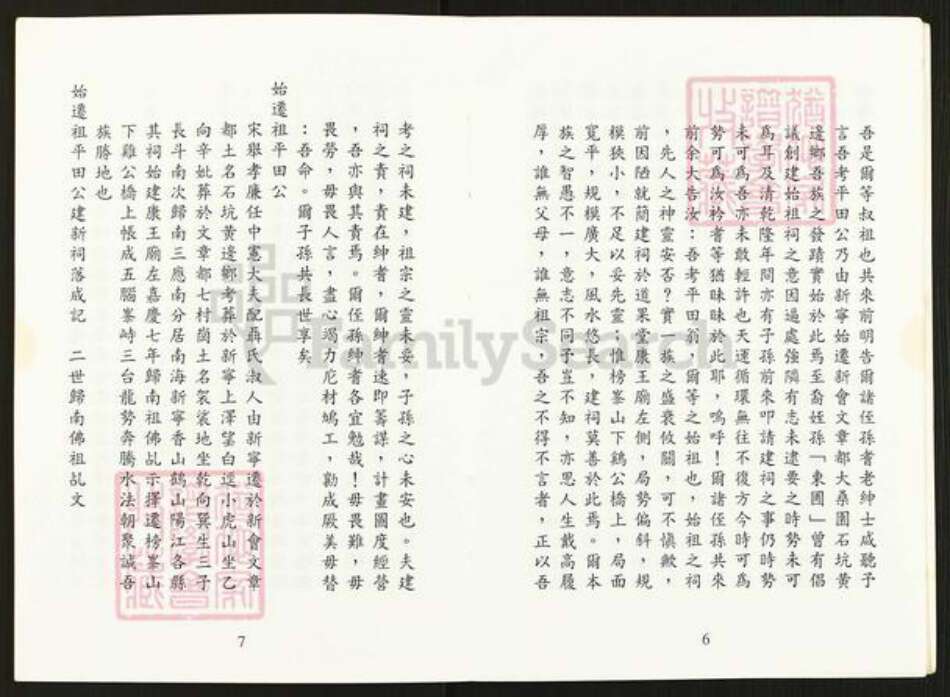 吾是爾等叔祖也共來前明告爾諸侄孫者老紳士咸聽予
言吾考平田公乃由新寧始遷新會文章都大桑園石坑黃
邊鄉吾族之發蹟實始於此焉至裔姪孫「東園」曾有倡
議創建始祖祠之意因逼處強隣有志未逮要之時勢未可
為耳及清乾隆年間亦有子孫前來叩請建祠之事仍時勢
未可為吾亦未敢輕許也天運循環無往不復方今時可為
勢可為汝衿耆等猶昧昧於此耶，嗚呼！爾諸侄孫共來
前余大告汝：吾考平田翁，爾等之始祖也，始祖之祠
，先人之神靈安否？實一族之盛衰攸關，可不慎歟，
前因陋就簡建祠於道果堂康王廟左側，局勢偏斜，規
模狹小，不足以妥先靈；惟榜峯山下鷄公橋上，局面
寬平，規模廣大，風水悠長，建祠莫善於此焉。爾本
族之智愚不一，意志不同予豈不知，亦思人生戴高履
厚，誰無父母，誰無祖宗，吾之不得不言者，正以吾
6
考之祠未建，祖宗之靈未妥，子孫之心未安也。夫建
祠之責，責在紳耆，爾紳耆速即籌謀，計畫圖度經營
，吾亦與其責焉。爾侄孫紳耆各宜勉哉！毋畏難，毋
畏勞，毋畏人言，盡心竭力庀材鳩工，勷成厥美毋替
：吾命。爾子孫共長世享矣。
始遷祖平田公
宋舉孝廉任中憲大夫配聶氏淑人由新寧遷於新會文章
都土名石坑黃邊鄉考葬於新寧上澤望白逕小虎山坐乙
向辛妣葬於文章都七村崗土名袈裟地坐乾向巽生三子
長斗南次歸南三應南分居南海新寧香山鶴山陽江各縣
其祠始建康王廟左嘉慶七年歸南祖佛乩示擇遷榜峯山
下雞公橋上帳成五腦峯峙三台龍勢奔騰水法朝聚誠吾
族勝地也
始遷祖平田公建新祠落成記　二世歸南佛祖乩文
7
FamilySearch